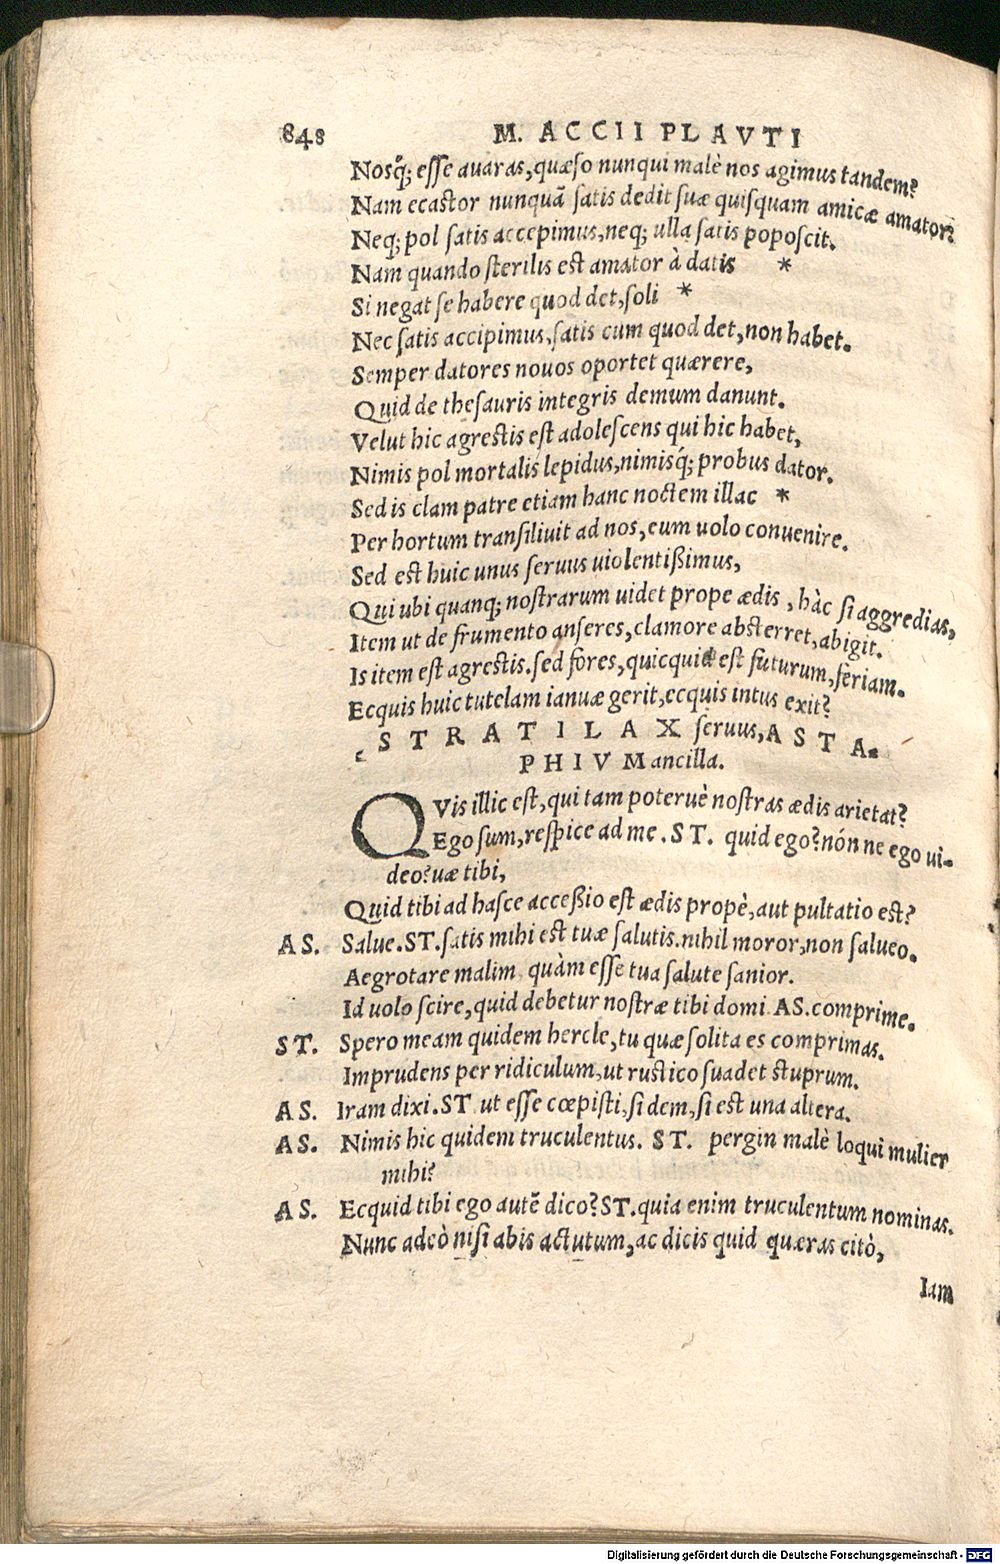 848 M. ACCII PLAVTI
Nosq́; esse auaras, quæso nunqui malè nos agimus tandem?
Nam ecastor nunquã satis dedit suæ quisquam amicæ amator:
Neq; pol satis accepimus, neq; ulla satis poposcit.
Nam quando sterilis est amator à datis *
Si negat se habere quod det, soli *
Nec satis accipimus, satis cum quod det, non habet.
Semper datores nouos oportet quærere,
Quid de thesauris integris demum danunt.
Velut hic agrestis est adolescens qui hic habet,
Nimis pol mortalis lepidus, nimisq́; probus dator.
Sed is clam patre etiam hanc noctem illac *
Per hortum transiliuit ad nos, eum uolo conuenire.
Sed est huic unus seruus uiolentißimus,
Qui ubi quanq; nostrarum uidet prope ædis, hàc si aggredias,
Item ut de frumento anseres, clamore absterret, abigit.
Is item est agrestis. sed fores, quicquid est futurum, feriam.
Ecquis huic tutelam ianuæ gerit, ecquis intus exit?
STRATILAX seruus, ASTA-
PHIVM ancilla.
QVis illic est, qui tam proteruè nostras ædis arietat?
Ego sum, respice ad me. ST. quid ego? nón ne ego ui-
deo? uæ tibi,
Quid tibi ad hasce acceßio est ædis propè, aut pultatio est?
AS. Salue. ST. satis mihi est tuæ salutis. nihil moror, non salueo.
Aegrotare malim quàm esse tua salute sanior.
Id uolo scire, quid debetur nostræ tibi domi AS. comprime.
ST. Spero meam quidem hercle, tu quæ solita es comprimas.
Imprudens per ridiculum, ut rustico suadet stuprum.
AS. Iram dixi. ST ut esse cœpisti, si dem, si est una altera.
AS. Nimis hic quidem truculentus. ST. pergin malè loqui mulier
mihi?
AS. Ecquid tibi ego autẽ dico? ST. quia enim truculentum nominas.
Nunc adeò nisi abis actutum, ac dicis quid quæras citò,
Iam
Digitalisierung gefördert durch die Deutsche Forschungsgemeinschaft - DFG